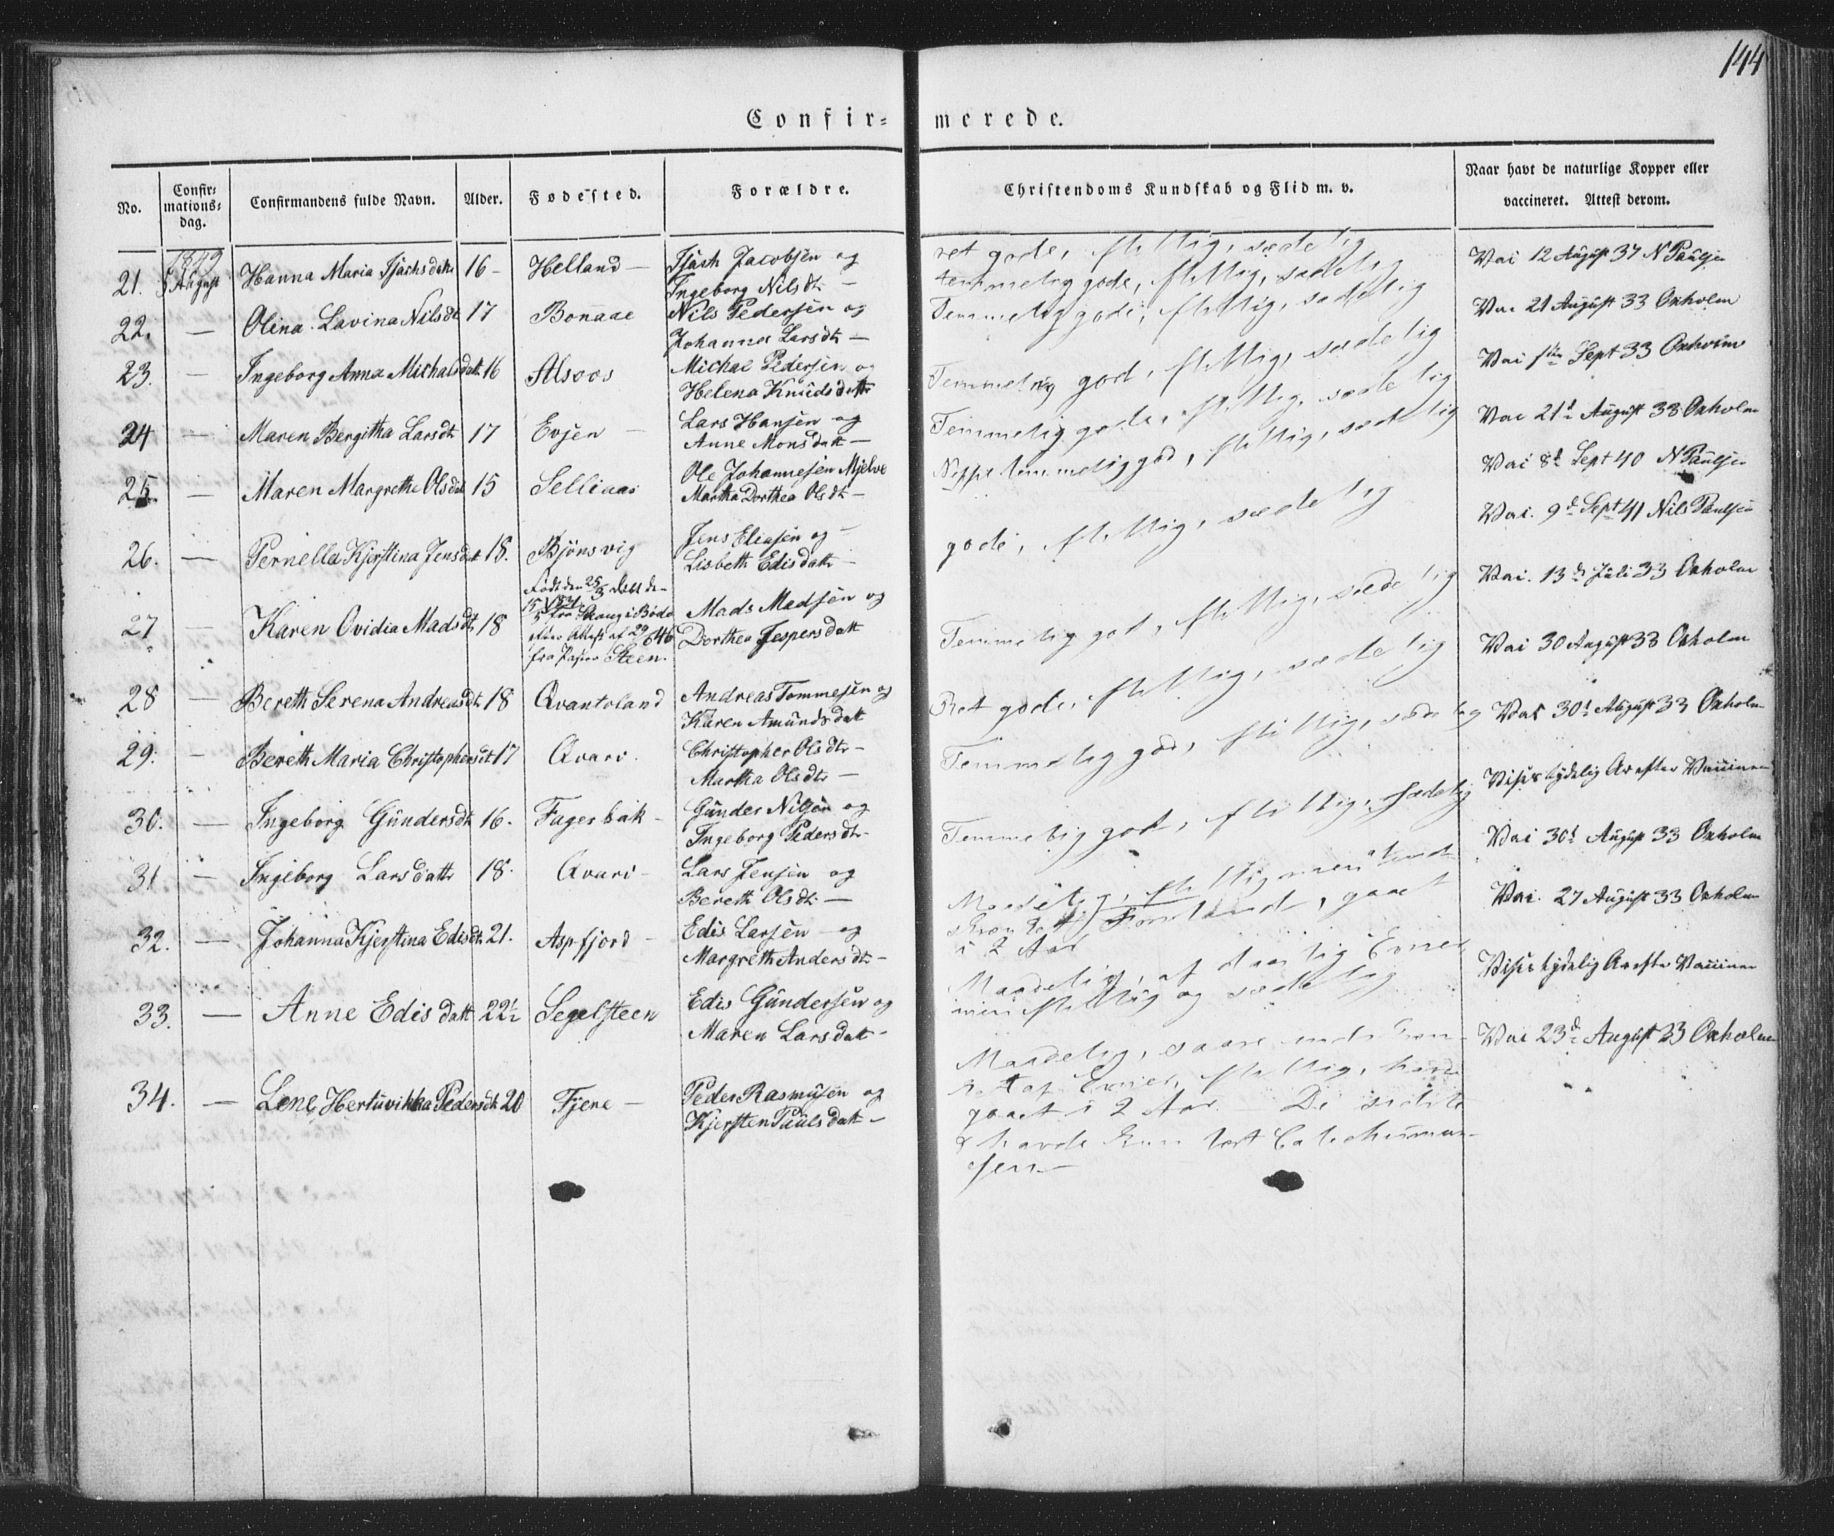 144
Confir- merede.
No. Confir-mations-dag. Confirmandens fulde Navn. Alder. Fødested. Forældre. Christendoms Kundskab og Flid m. v. Naar havt de naturlige Kopper eller vaccineret. Attest derom.
1849
21. 5 August Hanna Maria 16 - Helland - Jacobsen og Ingeborg Nilsdt - ret gode, flittig, sædelig Vac 12 August 37 N Paulsen
22. — Olina Lavina Nilsdt 17 Bonaae Nils Pedersen og Johanna Larsdt - temmelig gode, flittig, sædelig Vac 21 August 33 Oxholm
23. — Ingeborg Anna Michalsdatt 16 Alsoos Michal Pedersen og Helena Knudsdatt Temmelig gode, flittig, sædelig Vac Sept 33 Oxholm
24 — Maren Bergitha Larsdt 17 Evjen - Lars Hansen og Anne Monsdatt - Temmelig god, flittig, sædelig Vac 21d August 33 Oxholm
25. — Maren Margrethe Olsdat 15 Ole Johannesen Mjelve Martha Dorthea Olsdt - Temmelig gode, flittig, sædelig Vac 8d Sept 40 N Paulsen
26. — Pernella Kjerstina Jensdatt 18. Bjönsvig Jens Eliasen og - Lisbeth Edisdatt - Neppe temmelig god, flittig, sædelig Vac. 9d Sept 41 Nils Paulsen
27 — Karen Ovidia Madsdt 18 Födt den 25/3 fra i Bodö Attest af 29 46 fra Steen. Mads Madsen og Dorthea Jespersdatt gode, flittig, sædelig Vac. 13d Juli 33 Oxholm
28 — Bereth Serena Andreasdt 18 Qvantoland Andreas Tommesen og Karen Amundsdat Temmelig god, flittig, sædelig Vac 30 August 33 Oxholm
29. — Bereth Maria Christophersdt 17 Qvari. Christopher Olsdt - Martha Olsdt - Ret gode, flittig, sædelig Vac 30d August 33 Oxholm
30. — Ingeborg Gundersdt 16. Fagerbak - Gunder Nilsen og Ingeborg Pedersdt - Temmelig god, flittig, sædelig Viser tydelig Ar efter
31 — Ingeborg Larsdatt 18. Qvari - Lars Jensen og Bereth Olsdt - Temmelig god, flittig, sædelig Vac 30d August 33 Oxholm
32. — Johanna Kjerstina Edisdt 21. Aspfjord - Edis Larsen - og Margreth Andersdt - Maadelig, flittig men Forstand, gaaet i 2 Aar Vac. 27 August 33 Oxholm
33. — Anne Edisdatt 22½ Segelsteen Edis Gundersen og Maren Larsdat - Maadelig, af daarlig Evner men flittig og sædelig Viser tydelig Ar efter
34. — Lene Hertuvikka Pedersdt 20 Fjere - Peder Rasmusen og Kjersten Paulsdatt - Maadelig, af Evner, flittig, har gaaet i 2 Aar De sidste havde kun læst Vac 23d August 33 Oxholm